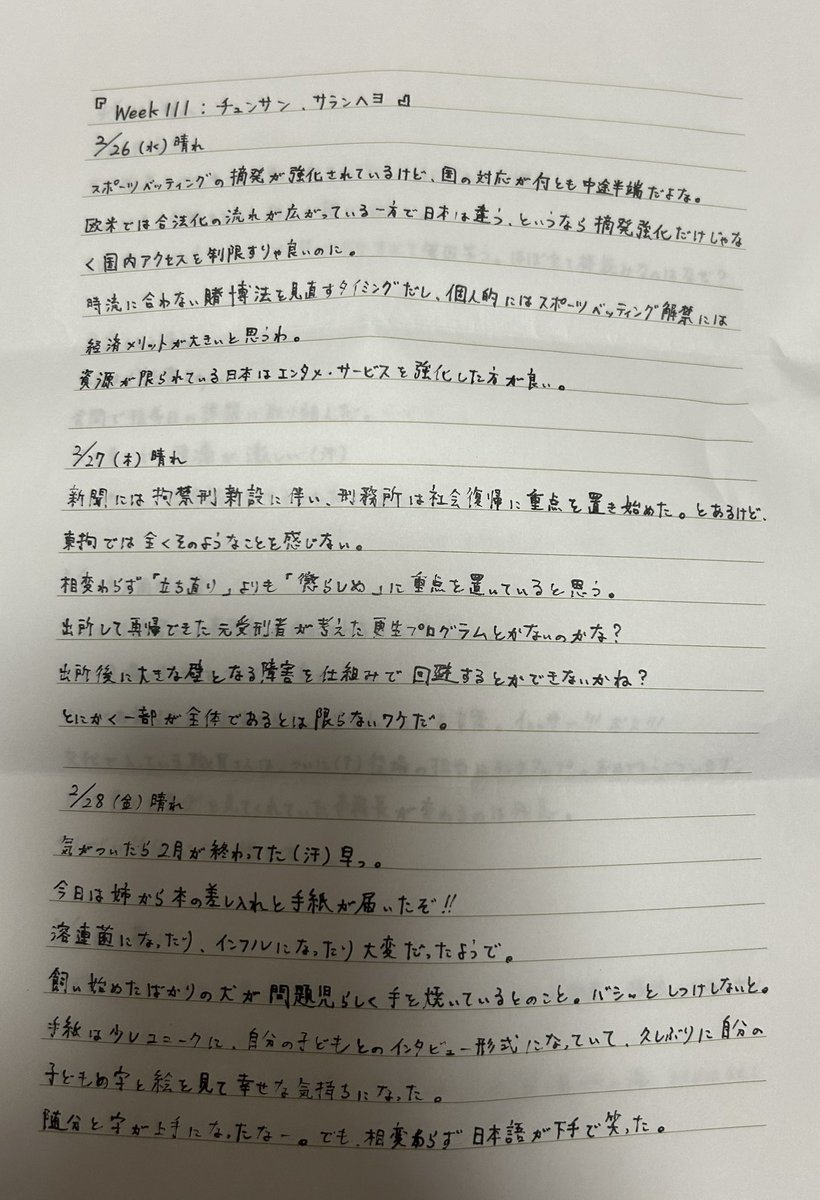 『Week 111：チュンサン、サランヘヨ』
2/26（水）晴れ
スポーツベッティングの摘発が強化されているけど、国の対応が何とも中途半端だよな。
欧米では合法化の流れが広がっている一方で日本は違う、というなら摘発強化だけじゃな
く国内アクセスを制限すりゃ良いのに。
時流に合わない賭博法を見直すタイミングだし、個人的にはスポーツベッティング解禁には
経済メリットが大きいと思うわ。
資源が限られている日本はエンタメ・サービスを強化した方が良い。
2/27（木）晴れ
新聞には拘禁刑新設に伴い、刑務所は社会復帰に重点を置き始めた。とあるけど、
東拘では全くそのようなことを感じない。
相変わらず「立ち直り」よりも「懲らしめ」に重点を置いていると思う。
出所して再帰できた元受刑者が考えた更生プログラムとかないのかな？
出所後に大きな壁となる障害を仕組みで回避するとかできないかね？
とにかく一部が全体であるとは限らないワケだ。
2/28（金）晴れ
気がついたら2月が終わってた（汗）早っ。
今日は姉から本の差し入れと手紙が届いたぞ!!
溶連菌になったり、インフルになったり大変だったようで。
飼い始めたばかりの犬が問題児らしく手を焼いているとのこと。バシッとしつけしないと。
手紙は少しユニークに、自分の子どもとのインタビュー形式になっていて、久しぶりに自分の
子どもの字と絵を見て幸せな気持ちになった。
随分と字が上手になったなー。でも、相変わらず日本語が下手で笑った。